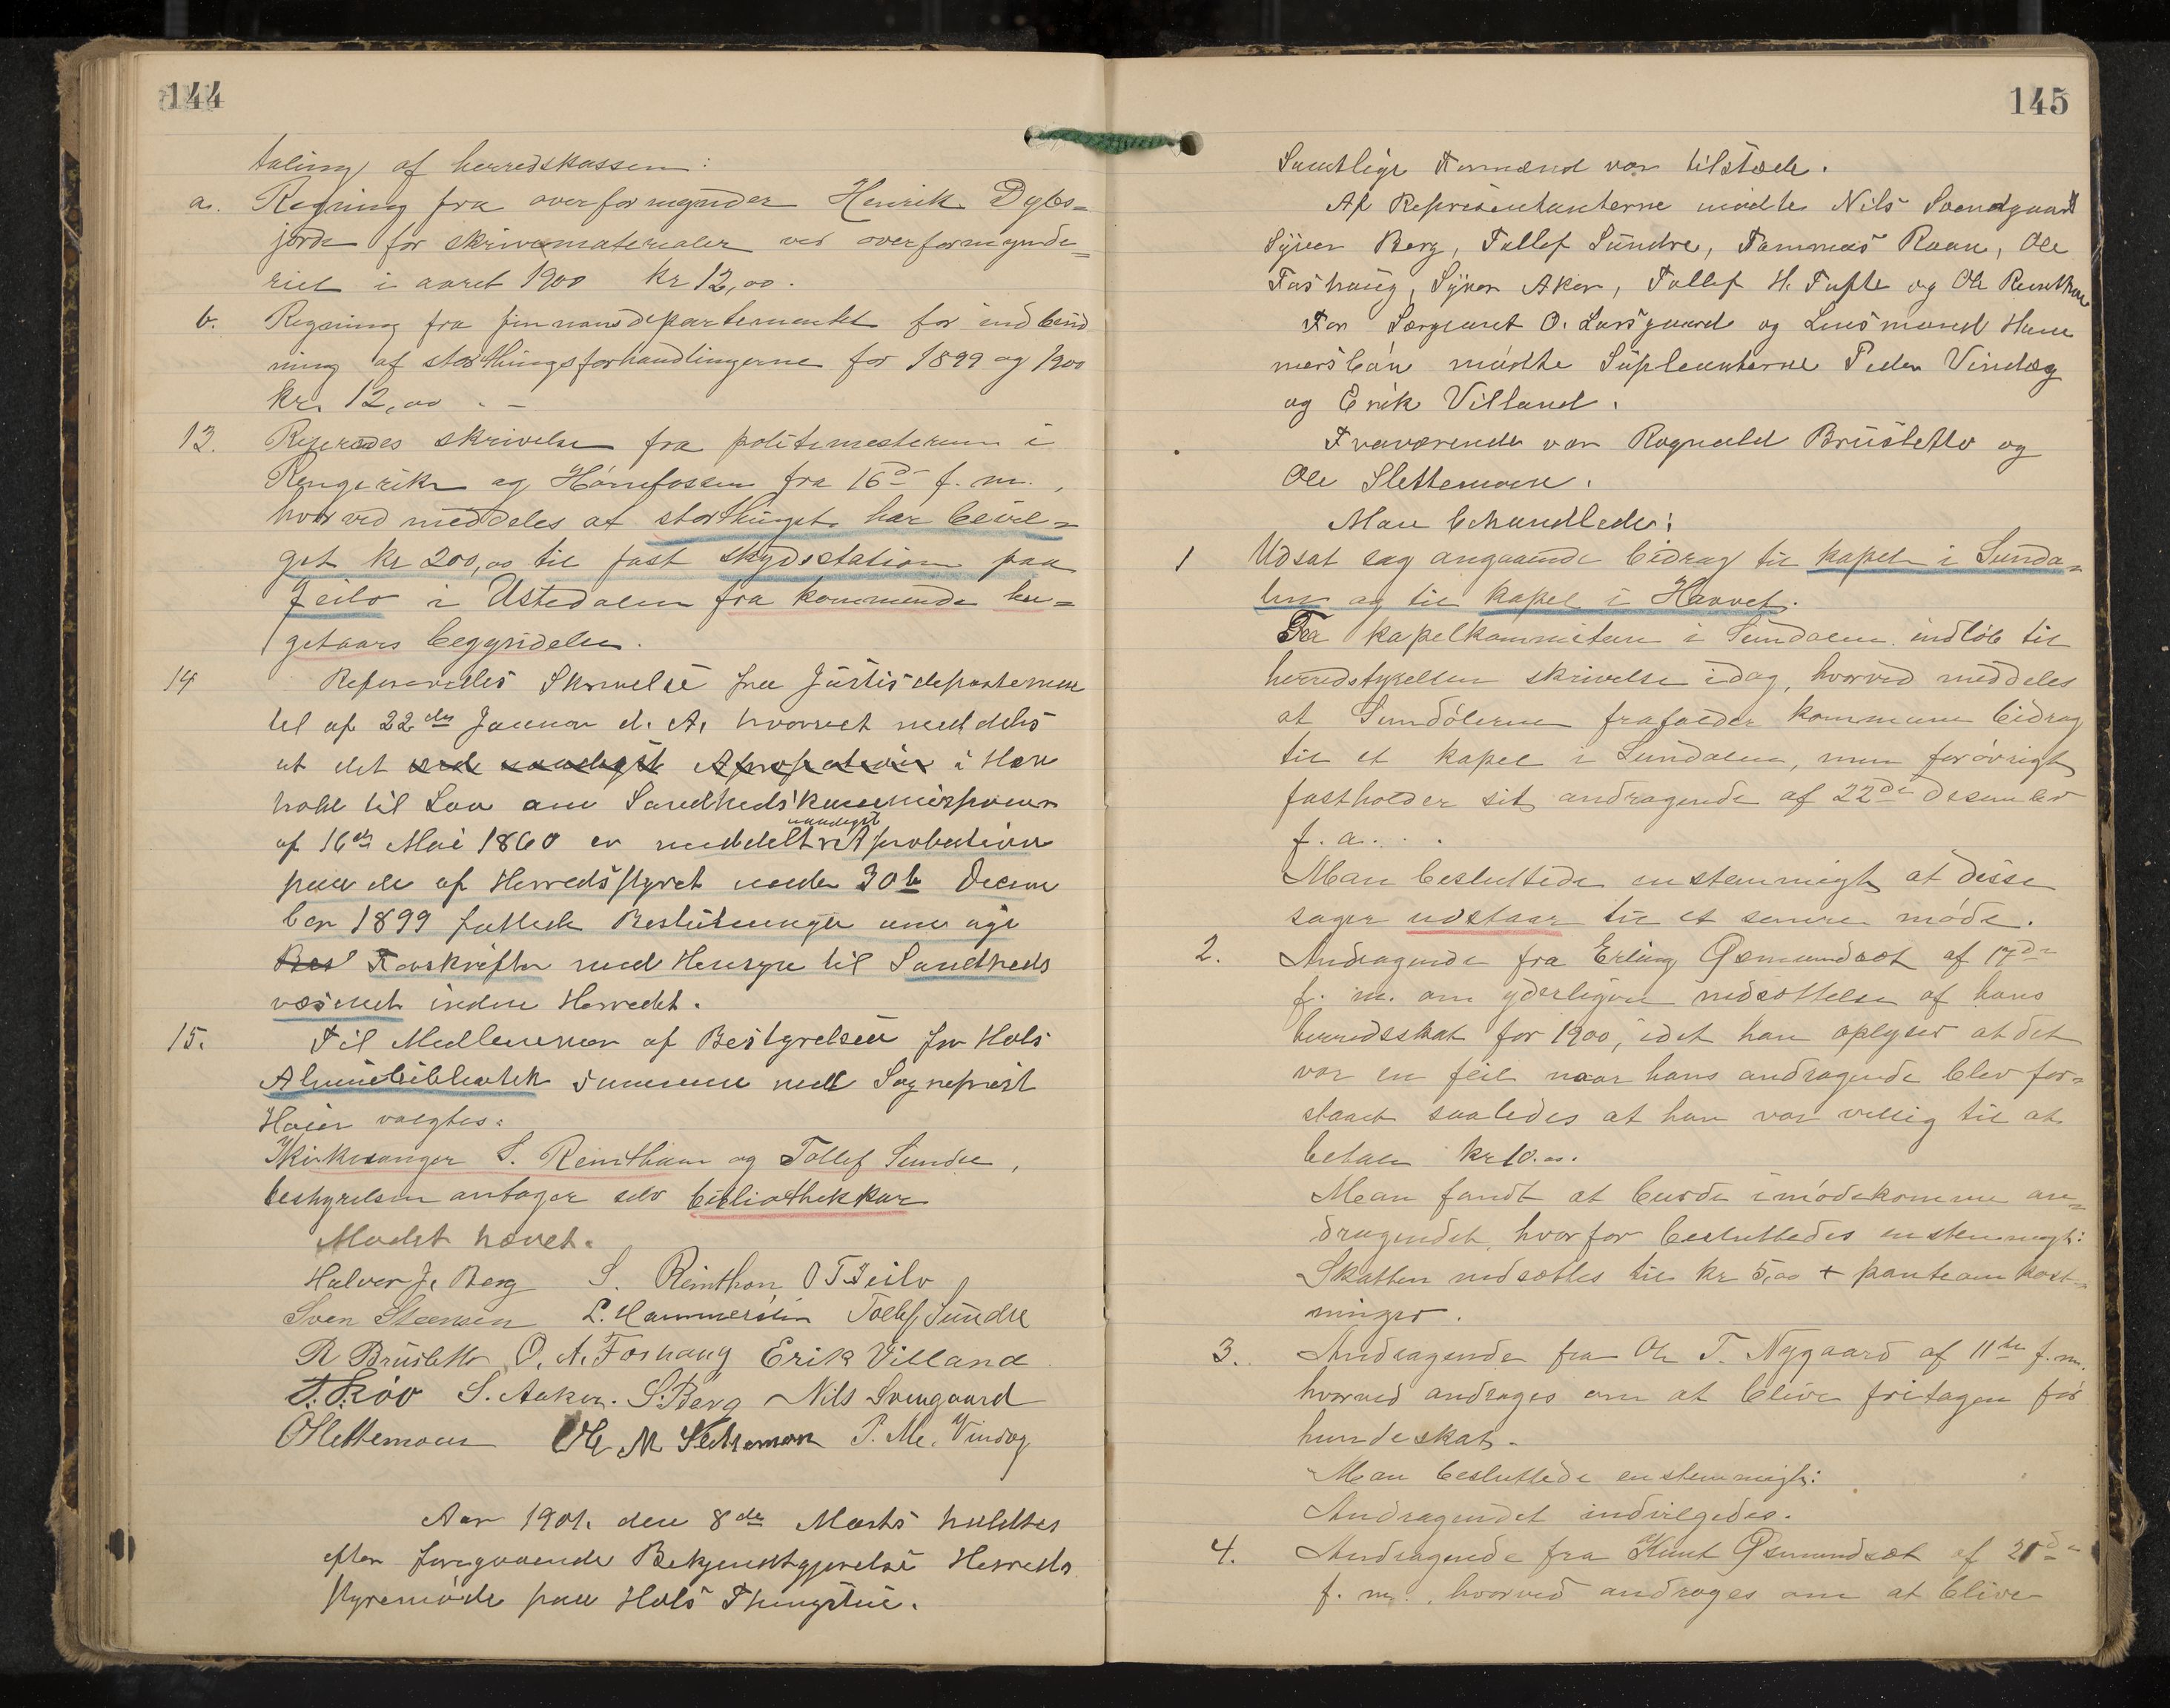 144
taling af herredskassen:
a. Regning fra overformynder Henrik Dybs=
jorde for skrivematerialer ved overformynde=
riet i aaret 1900 kr 12,00.
b. Regning fra finnansdepartementet for indbind
ning af storthingsforhandlingerne for 1899 og 1900
kr. 12,00 . –
13. Refereredes skrivelse fra politimesteren i
Ringerike og Hønefossen fra 16de f. m.,
hvorved meddeles at storthinget har bevil=
get kr 200,00 til fast skydsstation paa
Jeilo i Ustedalen fra kommende bu=
getaars begyndelse.
14 Refereredes Skrivelse fra Justisdepartemen
tet af 22de Januar d. A. hvorvet meddeles
at det ved naadigst Aprobation i Hen
hold til Lov om Sundhedskommisjoner
af 16de Mai 1860 er meddelt naadigst Approbation
paa de af Herredsstyret under 30te Decem
ber 1899 fattede Beslutninger om nye
Bes Forskrifter med Hensyn til Sundheds
væsenet inden Herredet.
15. Til Medlemmer af Bestyrelsen for Hols
Almuebibliothek sammen med Sogneprest
Høier valgtes:
Kirkesanger S. Reinthon og Tollef Sundre,
bestyrelsen antager selv bibliothekkar
Mødet hævet.
Halvor J. Berg S. Reinthon O T Jeilo
Sven Steensen L. Hammersbøn Tollef Sundre
R Brusletto O. A. Foshaug Erik Villand
T. Skóv S. Aaker. S. Berg Nils Svengaard
OSlettemoen Ole M Slettemoen P. Me. Vindæg
Aar 1901. den 8de Marts holdtes
efter foregaaende Bekjendtgjørelse Herreds
styremøde paa Hols Thingstue.
145
Samtlige Formænd var tilstæde.
Af Representanterne mødte Nils Svendgaard
Syver Berg, Tollef Sundre, Tommas Raan, Ole
Foshaug, Syver Aker, Tollef H. Tufte og Ole Reinthon
For Sergeant O. Larsgaard og Lensmand Ham
mersbøn mødte Supleanterne Peder Vindæg
og Erik Villand.
Fraværende var Rognald Brusletto og
Ole Slettemoen.
Man behandlede:
1 Udsat sag angaaende bidrag til kapel i Sunda=
len og til kapel i Havvet.
Fra kapelkommiteen i Sundalen indløb til
herredstyrellsen skrivelse idag, hvorved meddeles
at Sundølerne frafalder kommunebidrag
til et kapel i Sundalen, men forøvrigt
fastholder sit andragende af 22de Desember
f. a. . .
Man besluttede enstemmigt at disse
sager udstaar til et senere møde.
2. Andragende fra Erling Gsmundsæt af 17de
f. m. om yderligere nedsættelse af hans
herredsskat for 1900, idet han oplyser at det
var en feil naar hans andragende blev for=
staaet saaledes at han var villig til at
betale kr 10.00.
Man fandt at burde imødekomme an=
dragendet, hvorfor besluttedes enstemmigt:
Skatten nedsættes til kr 5,00 + panteomkost=
ninger.
3. Andragende fra Ole T. Nygaard af 11te f. m.
hvorved andrages om at blive fritagen for
hundeskat.
Man besluttede enstemmigt:
Andragendet indvilgedes.
4. Andragende fra Knut Gsmundsæt af 21de
f. m., hvorved andrages om at blive